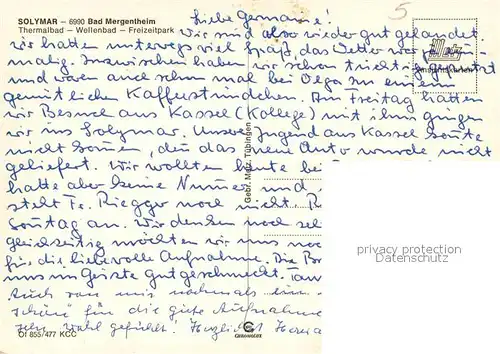 SOLYMAR – 6990 Bad Mergentheim
Thermalbad – Wellenbad – Freizeitpark
Liebe Germanie!
Wir sind also wieder gut gelandet.
Wir hatten unterwegs viel Spaß, das Wetter war
malig. Inzwischen haben wir schon tüchtig geputzt
und waren auch schon mal bei Olga zu einem
gemütlichen Kaffeestündchen. Am Freitag hatten
wir Besuch aus Kassel (Kollege) mit ihm gingen
wir ins Solymar. Unsere Jugend aus Kassel konnte
nicht kommen, denn das neue Auto wurde nicht
geliefert. Wir wollten heute bei
hatte aber keine Nummer und
steht Fr. Riegger noch nicht.
Sonntag an. Wir denken noch
gleichzeitig möchten wir uns
für die liebevolle Aufnahme. Die
uns im Geiste gut geschmeckt.
Auch von mir nochmals
schön für die gute Aufnahme
sehr wohl gefühlt. Herzlichst
Gebr. Metz, Tübingen
Of 855/477 KCC
5
privacy protection
Datenschutz